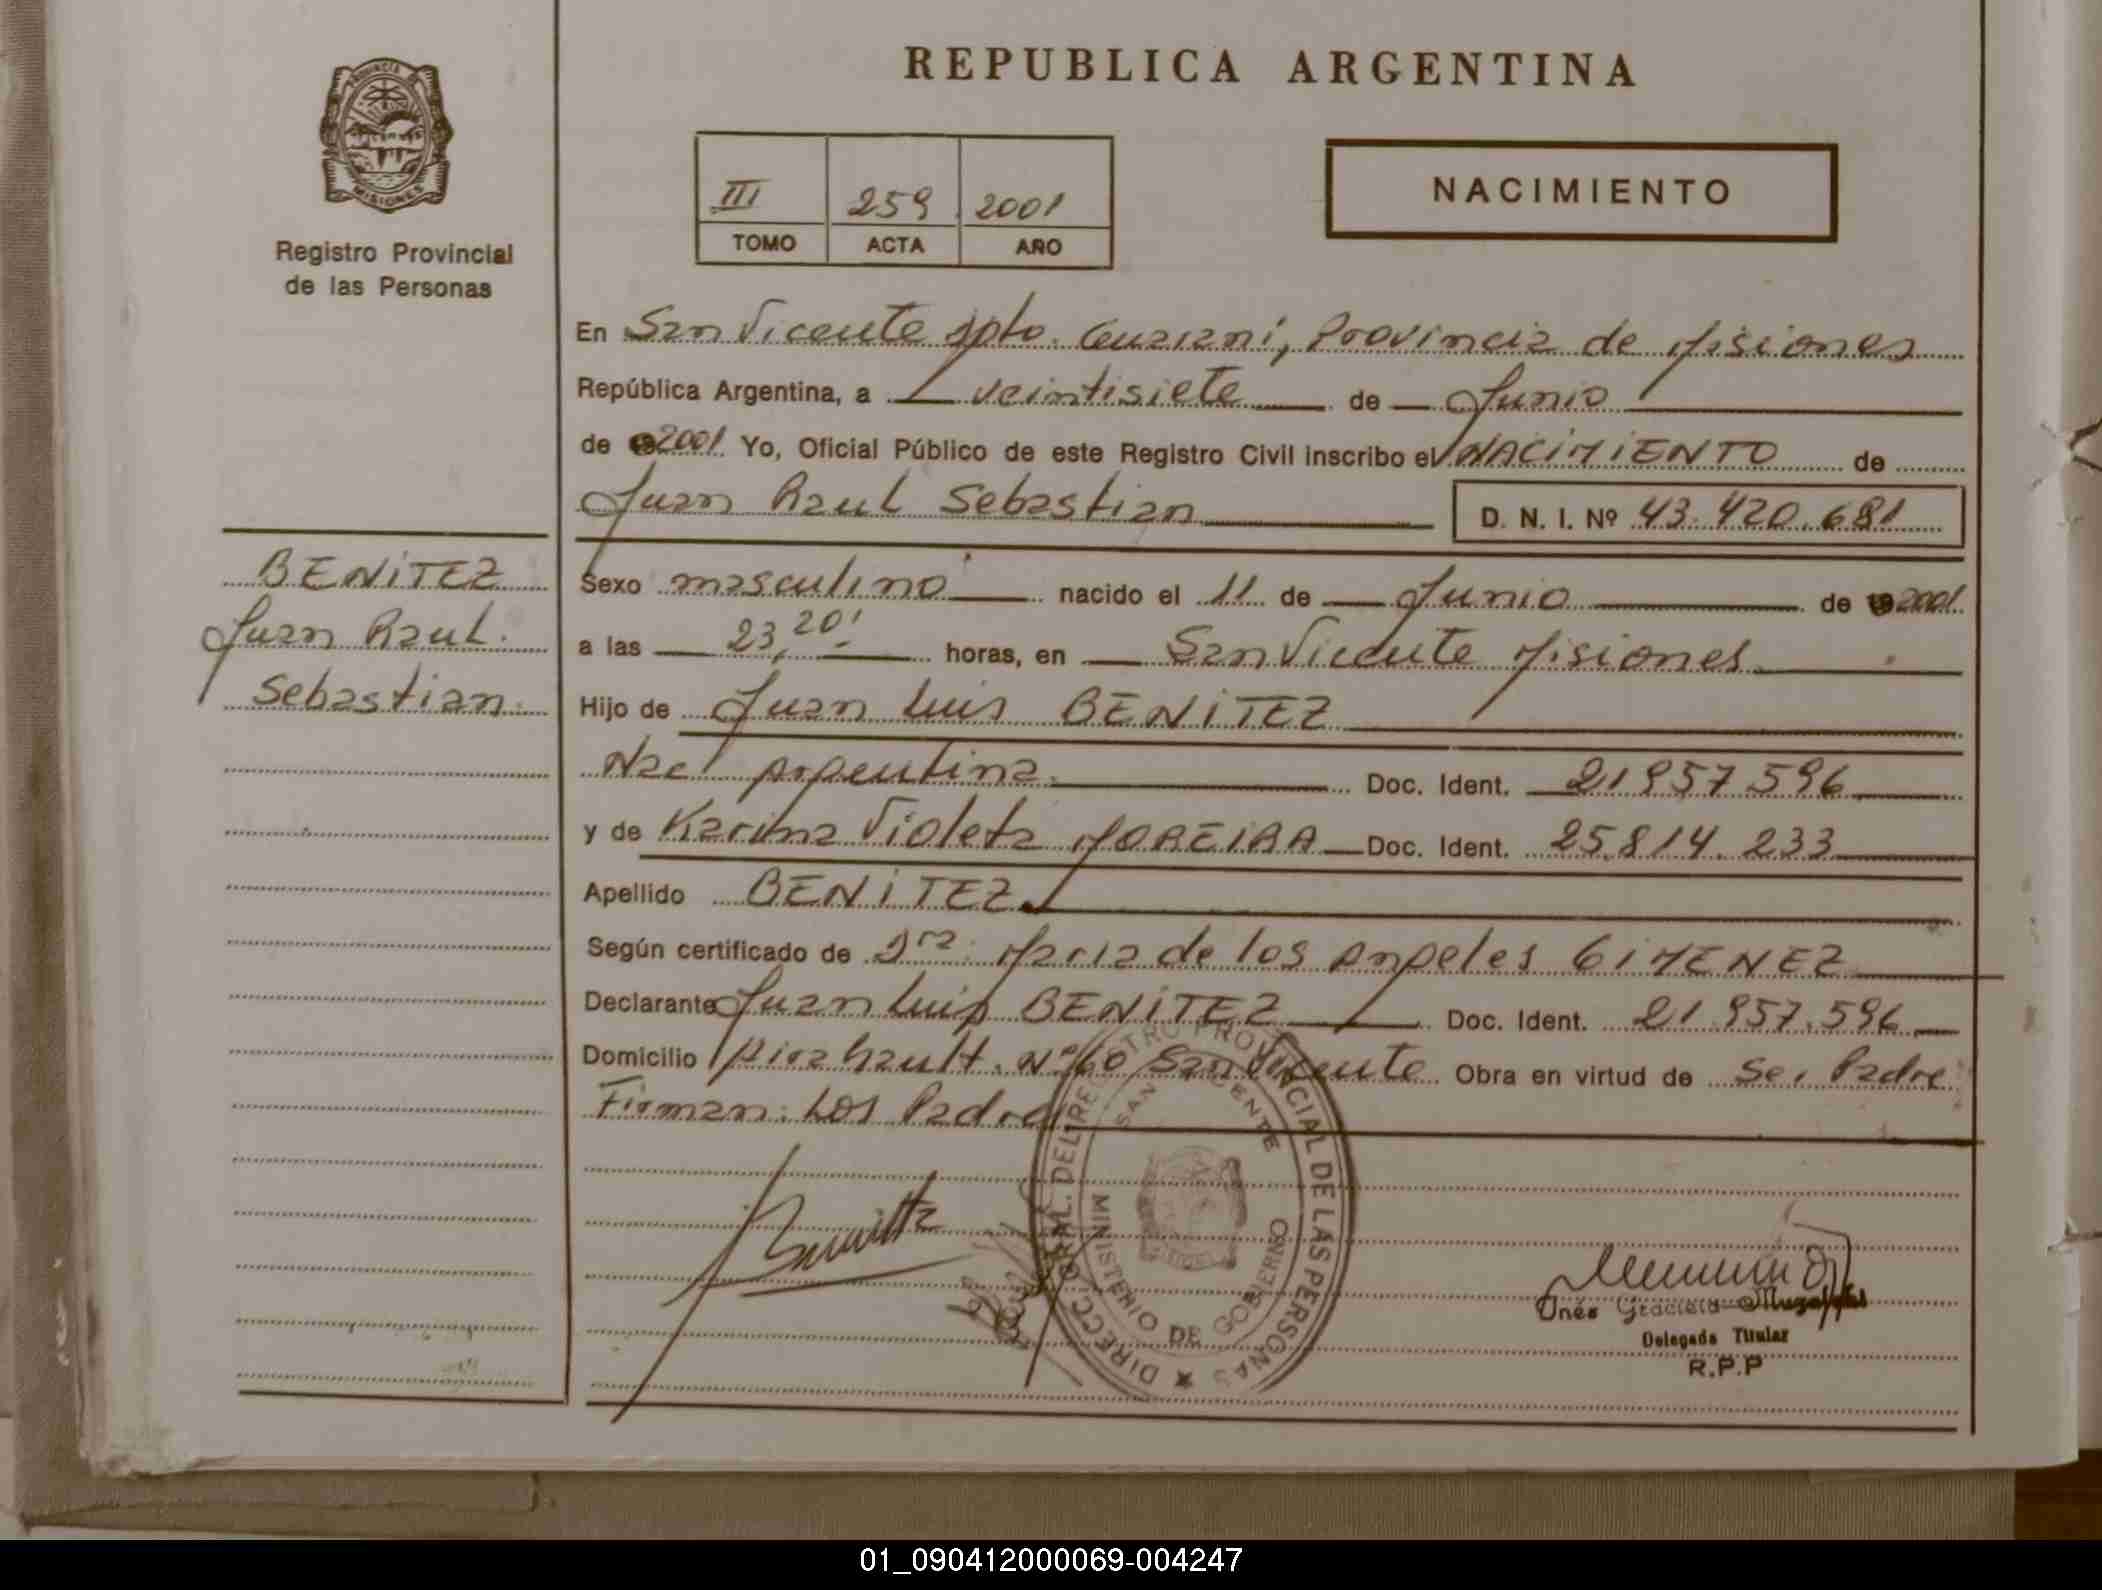 REPUBLICA ARGENTINA
PROVINCIA DE
MISIONES
Registro Provincial
de las Personas
III 259 2001
TOMO ACTA AÑO
NACIMIENTO
En San Vicente Dpto. Guarani, Provincia de Misiones
República Argentina, a veintisiete de Junio
de 2001 Yo, Oficial Público de este Registro Civil inscribo el NACIMIENTO de
Juan Raul Sebastian D. N. I. Nº 43.420.681
BENITEZ
Juan Raul.
Sebastian.
Sexo masculino nacido el 11 de Junio de 2001
a las 23,20' horas, en San Vicente Misiones
Hijo de Juan Luis BENITEZ
Nac. Argentina. Doc. Ident. 21957596
y de Karina Violeta MOREIRA Doc. Ident. 25.814.233
Apellido BENITEZ
Según certificado de Dra. Maria de los Angeles GIMENEZ
Declarante Juan Luis BENITEZ Doc. Ident. 21.957.596
Domicilio Nº 60 San Vicente Obra en virtud de Ser Padre
Firman: Los Padres
DIRECC. GRAL. DEL REGISTRO PROVINCIAL DE LAS PERSONAS
SAN VICENTE
MINISTERIO DE GOBIERNO
Inés Graciela
Delegada Titular
R.P.P
01_090412000069-004247